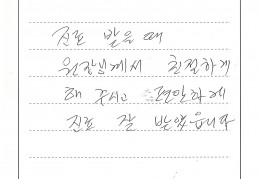 진료 받을 때
원장님께서 친절하게
해 주시고 편안하게
진료 잘 받았읍니다